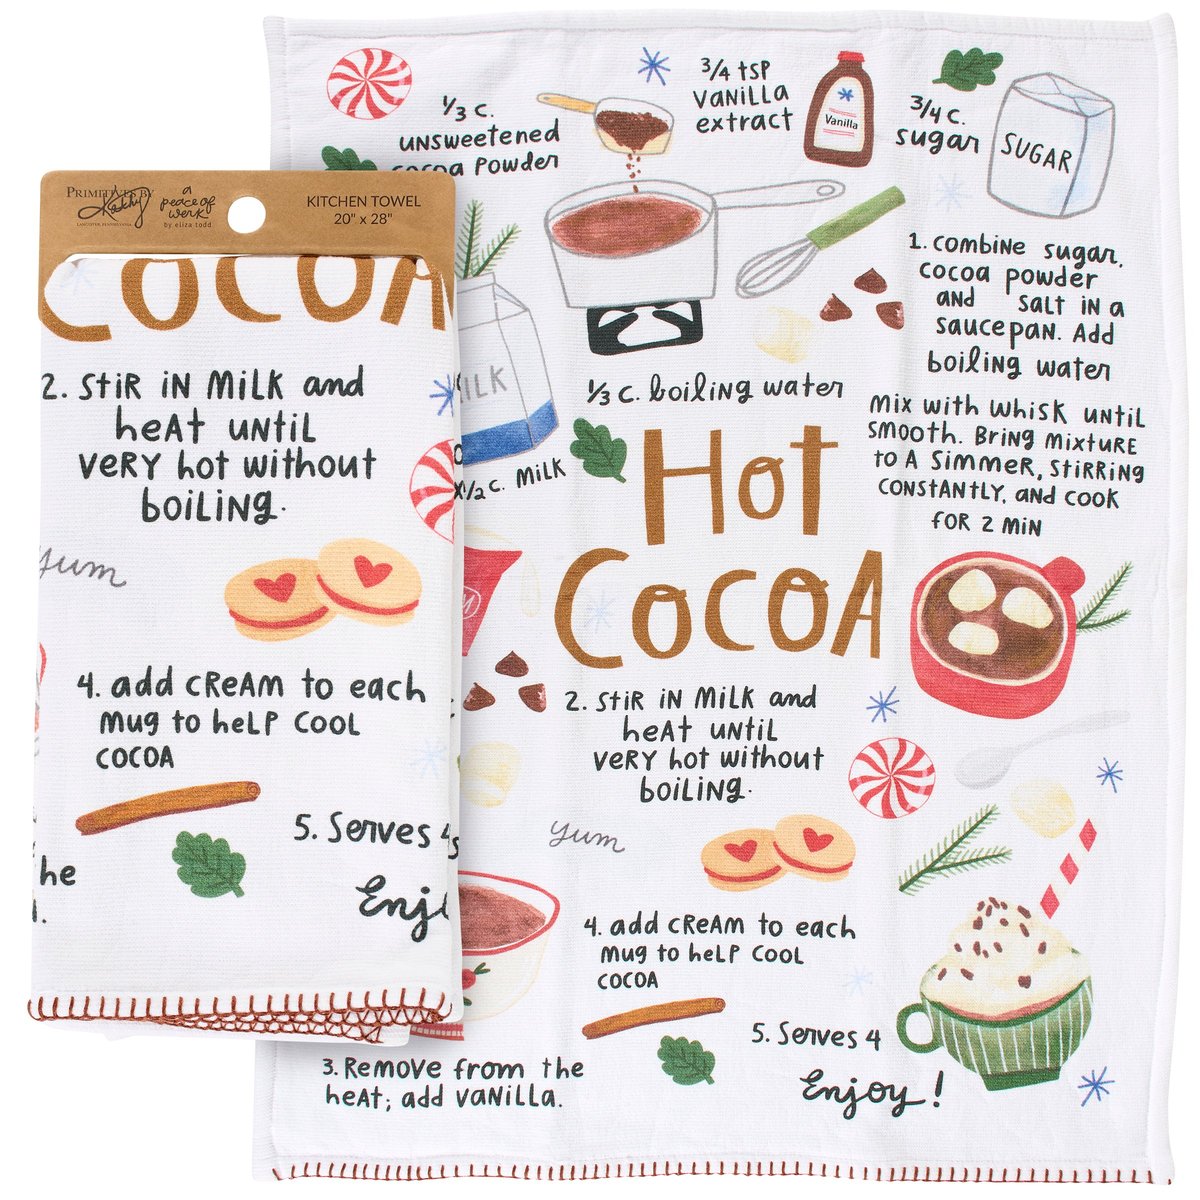 PRIMITIVES BY
Kathy
LANCASTER, PENNSYLVANIA
a
peace of
work
by eliza todd
KITCHEN TOWEL
20" x 28"
COCOA
2. Stir in milk and
heat until
very hot without
boiling.
yum
4. add cream to each
mug to help cool
cocoa
5. Serves 4
he
Enj
1/3 c.
unsweetened
cocoa powder
3/4 tsp
vanilla
extract
Vanilla
3/4 c.
sugar
SUGAR
1. combine sugar,
cocoa powder
and salt in a
saucepan. Add
boiling water
mix with whisk until
smooth. Bring mixture
to a simmer, stirring
constantly, and cook
for 2 min
1/3 c. boiling water
ILK
1/2 c. milk
Hot
Cocoa
2. Stir in milk and
heat until
very hot without
boiling.
yum
4. add cream to each
mug to help cool
cocoa
5. Serves 4
3. Remove from the
heat; add vanilla.
Enjoy!